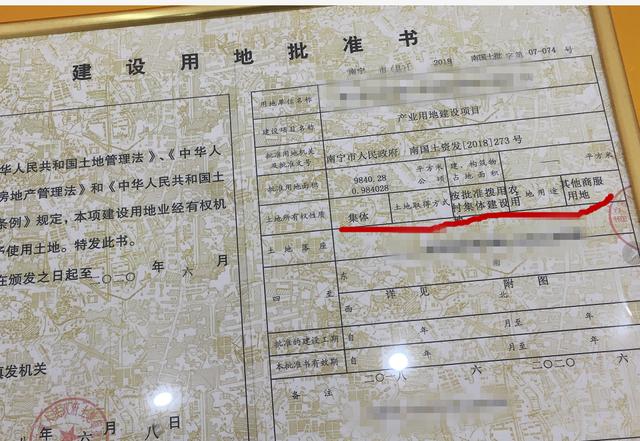 建设用地批准书
南宁 市(县) 2018 南国土批字第07-074号
华人民共和国土地管理法》、《中华
房地产管理法》和《中华人民共和国土
条例》规定,本项建设用地业经有权机
予使用土地。特发此书。
在颁发之日起至二〇二〇年六月
填发机关
年六月八日
用地单位名称
建设项目名称 产业用地建设项目
批准用地机关及批准文号 南宁市人民政府 南国土资发[2018]273号
批准用地面积 9840.28 平方米 0.984028 公顷 建、构筑物占地面积 平方米
土地所有权性质 集体 土地取得方式 按批准拨用农村集体建设用 土地用途 其他商服用地
土地座落
四至 东 南
西 详见 北 附图
批准的建设工期 自 年 月至 年
本批准书有效期 自 二〇一八 年 六 月至 二〇二〇 年 六
备注